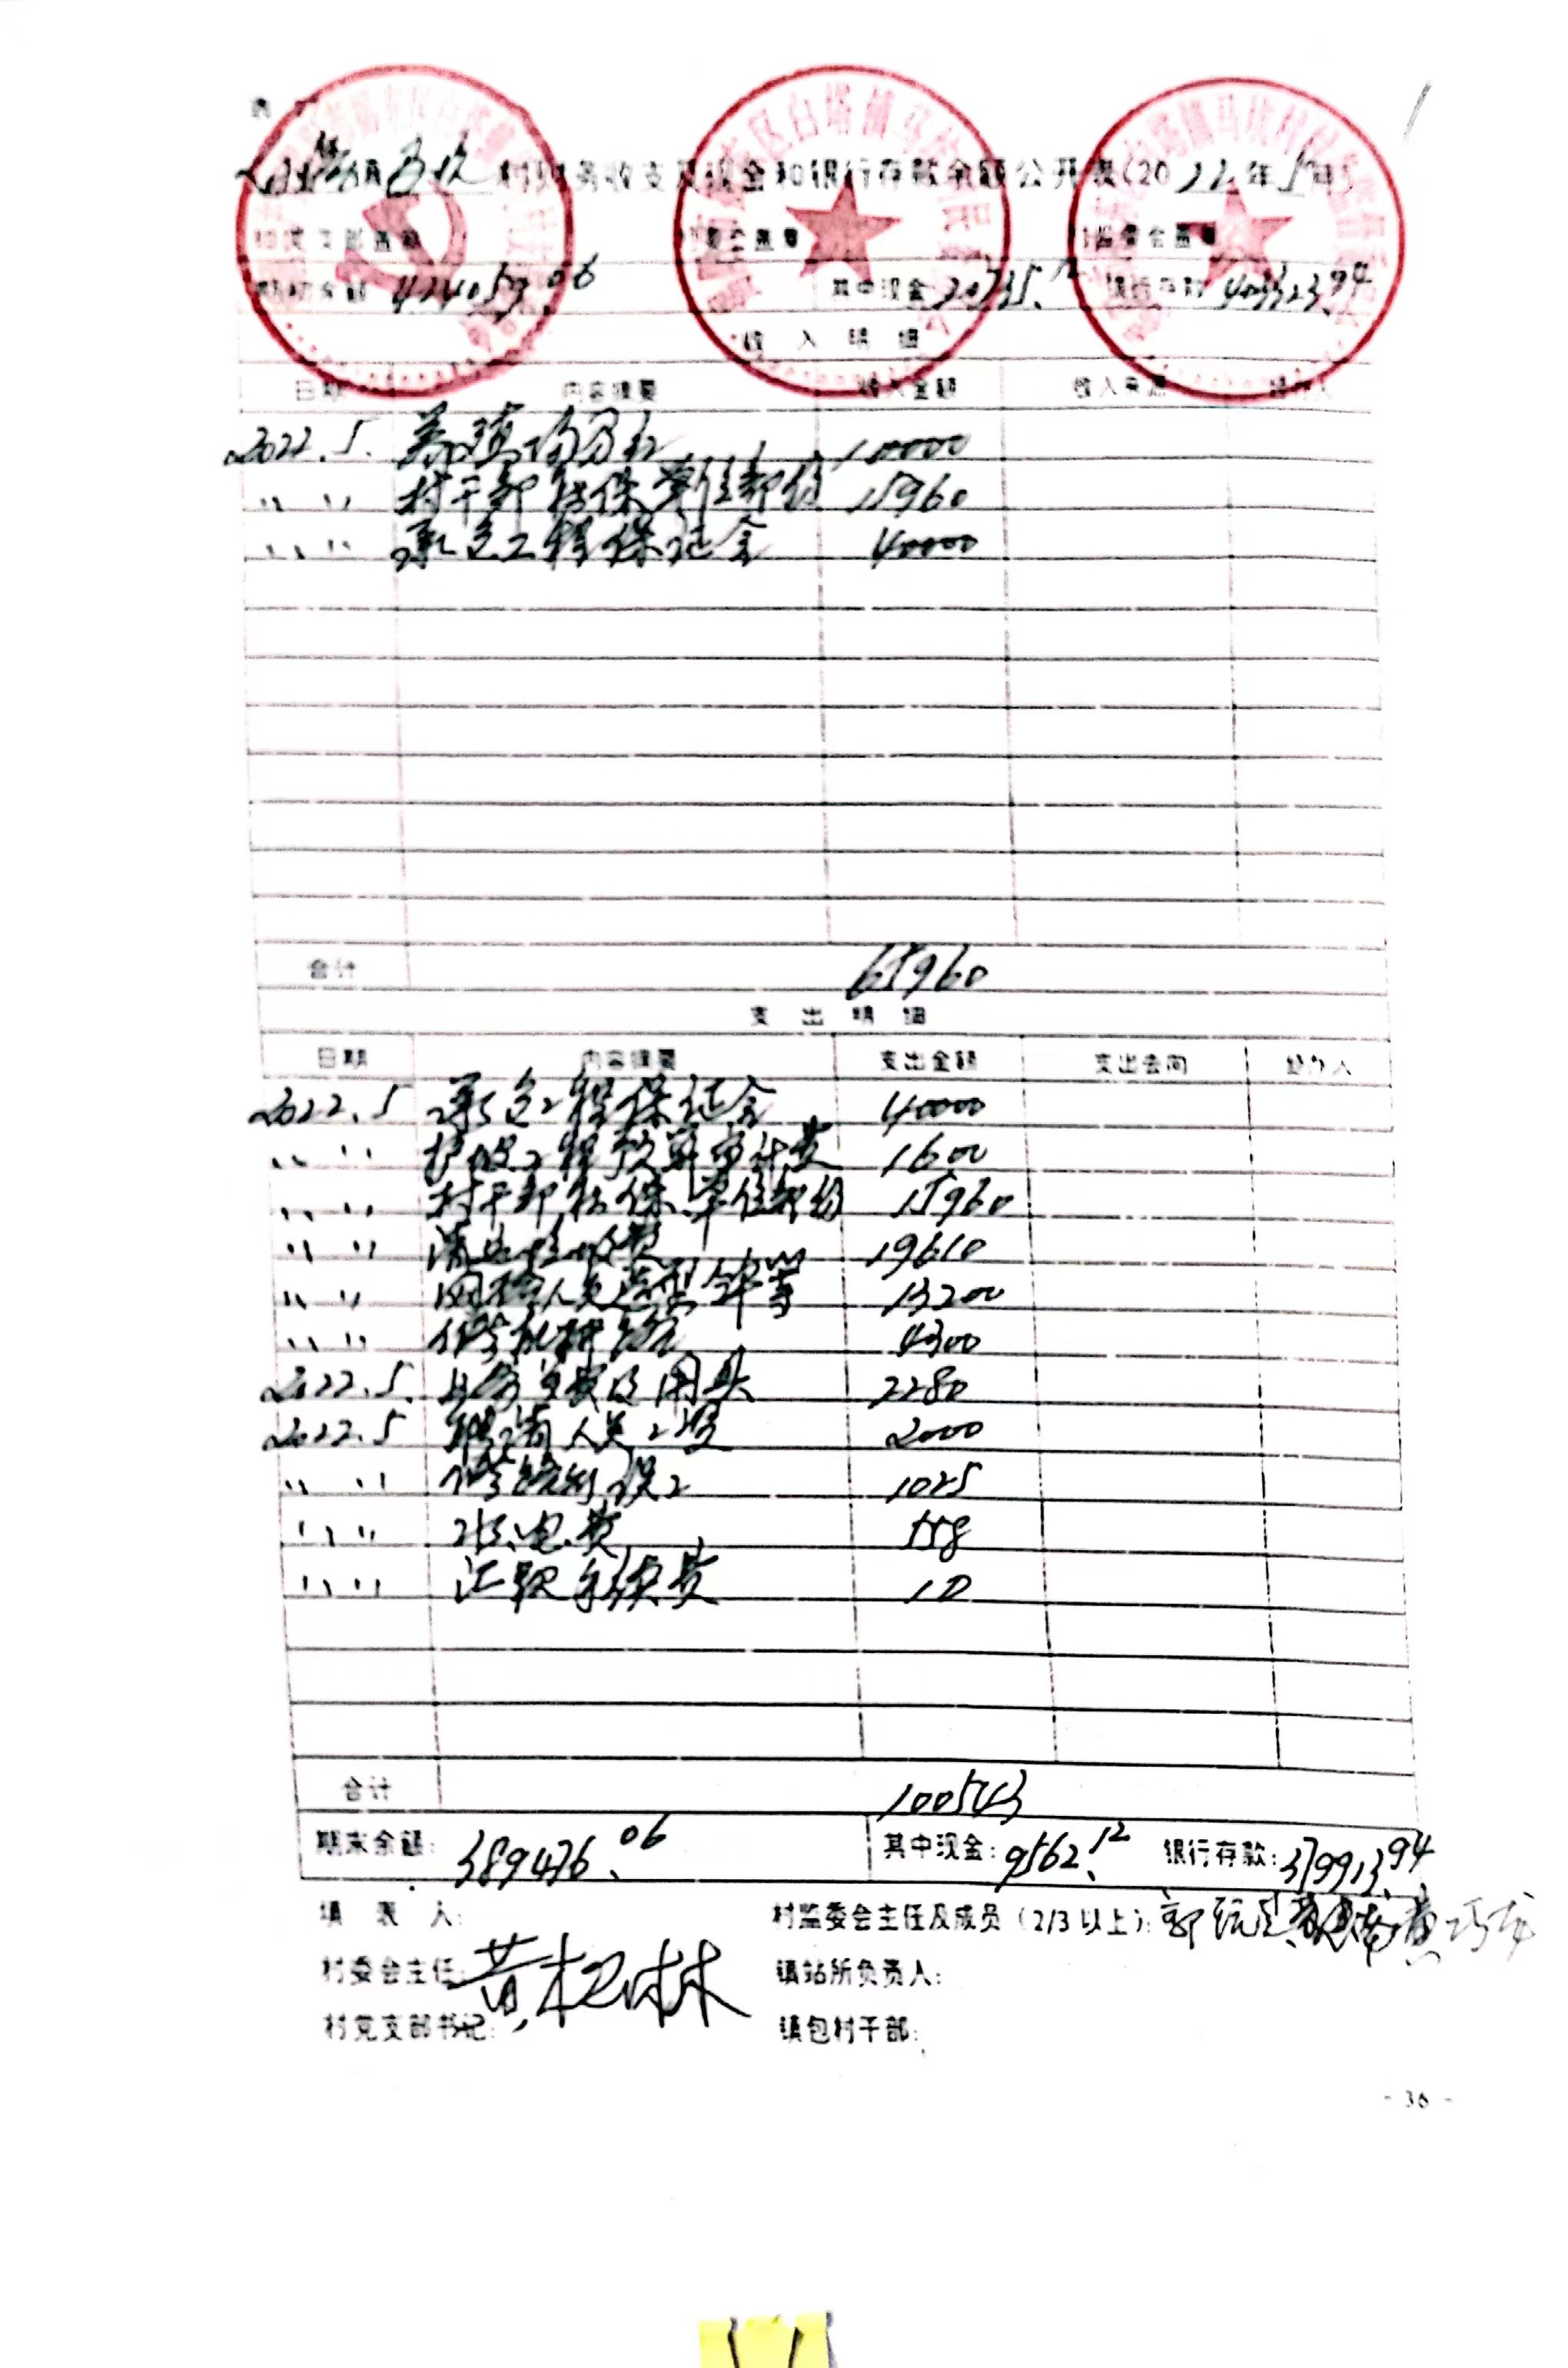 白塔镇马坎村财务收支及现金和银行存款余额公开表(2022年5月)
村党支部盖章 村委会盖章 村监委会盖章
期初余额 424059.06 其中现金 20735.12 银行存款 403323.94
收入明细
日期 内容摘要 收入金额 收入来源 经办人
2022.5. 养殖场分红 10000
〃 〃 村干部社保单位部份 15960
〃 〃 承包工程保证金 40000
合计 65960
支出明细
日期 内容摘要 支出金额 支出去向 经办人
2022.5 承包工程保证金 40000
〃 〃 护坡工程预算审计费 1600
〃 〃 村干部社保单位部份 15960
〃 〃 19610
〃 〃 13200
〃 〃 4300
2022.5. 2280
2022.5 聘请人员工资 2000
〃 〃 1025
〃 〃 水电费 558
〃 〃 汇款手续费 10
合计 100543
期末余额: 389476.06 其中现金: 9562.12 银行存款: 379913.94
填表人: 村监委会主任及成员(2/3以上):
村委会主任: 镇站所负责人:
村党支部书记: 镇包村干部:
- 36 -